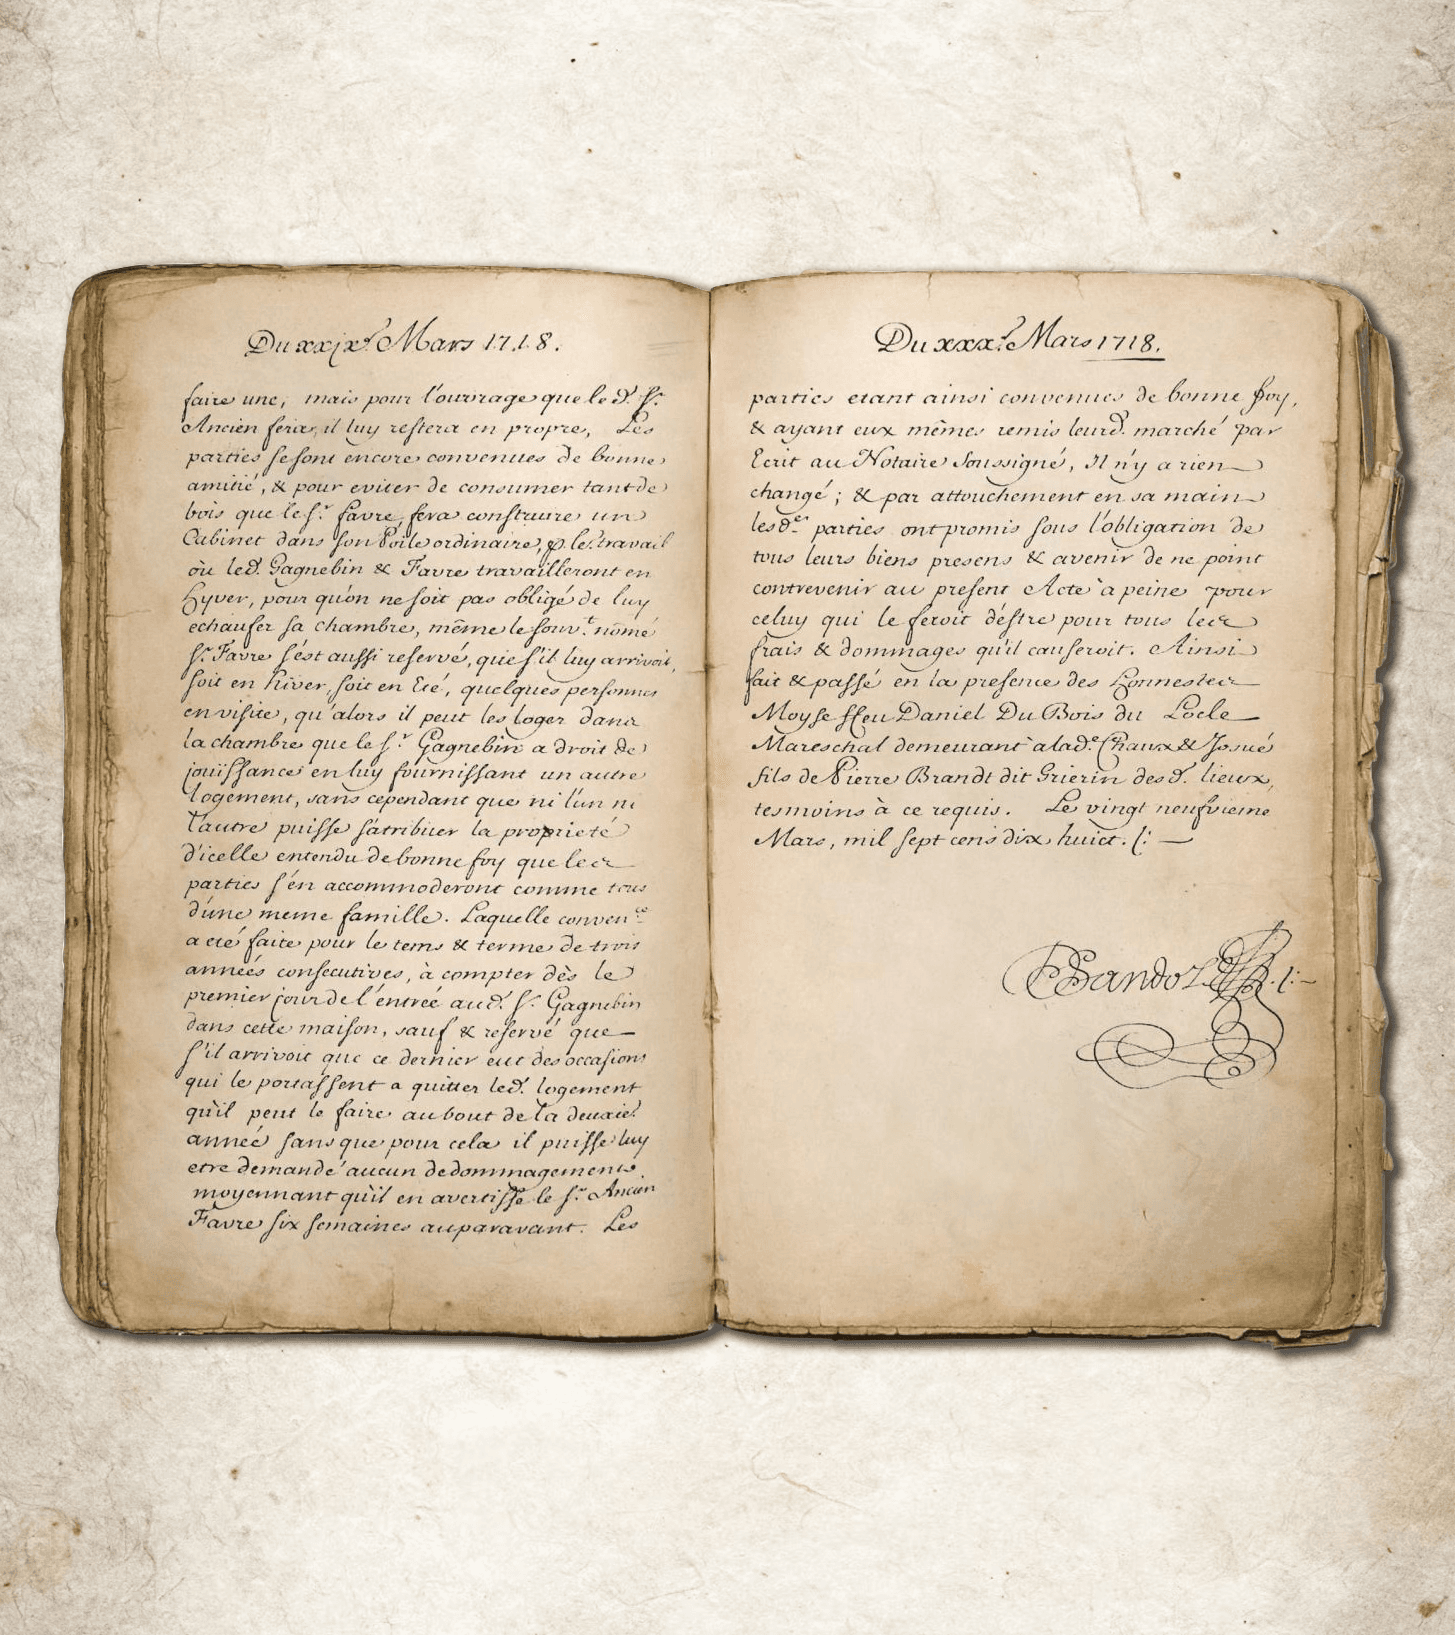 Du xxjx.e Mars 1718.
faire une, mais pour l'ouvrage que le d. Sr.
Ancien fera, il luy restera en propre, Les
parties se sont encore convenues de bonne
amitié, & pour eviter de consumer tant de
bois que le Sr. Favre, fera construire un
Cabinet dans son Poile ordinaire, p. le travail
où led. Gagnebin & Favre travailleront en
hyver, pour qu'on ne soit pas obligé de luy
echaufer sa chambre, même le souv.t nomé
Sr. Favre s'ést aussi reservé, que s'il luy arrivoit,
soit en hiver, soit en Eté, quelques personnes
en visite, qu'alors il peut les loger dans
la chambre que le Sr. Gagnebin a droit de
jouissance en luy fournissant un autre
logement, sans cependant que ni l'un ni
l'autre puisse s'atribuer la proprieté
d'icelle entendu de bonne foy que les
parties s'én accommoderont comme tous
d'une meme famille. Laquelle conven.ce
a eté faite pour le tems & terme de trois
années consecutives, à compter dès le
premier jour de l'éntreé aud. Sr. Gagnebin
dans cette maison, sauf & reservé que
s'il arrivoit que ce dernier eut des occasions
qui le portassent a quitter led. logement
qu'il peut le faire au bout de la deuxie.
anneé sans que pour cela il puisse luy
etre demandé aucun dedommagements
moyennant qu'il en avertisse le Sr. Ancien
Favre six semaines auparavant. Les
Du xxx.e Mars 1718.
parties etant ainsi convenues de bonne foy,
& ayant eux mêmes remis leurd. marché par
Ecrit au Notaire Soussigné, Il n'y a rien
changé ; & par attouchement en sa main
lesd.es parties ont promis sous l'obligation de
tous leurs biens presens & avenir de ne point
contrevenir au present Acte à peine pour
celuy qui le feroit d'éstre pour tous les
frais & dommages qu'il causeroit. Ainsi
fait & passé en la presence des honnestes
Moyse ffeu Daniel Du Bois du Locle
Mareschal demeurant à lad.e Chaux & Josué
fils de Pierre Brandt dit Grierin desd. lieux,
tesmoins à ce requis. Le vingt neufvieme
Mars, mil sept cens dix huict. /:
Sandoz /: